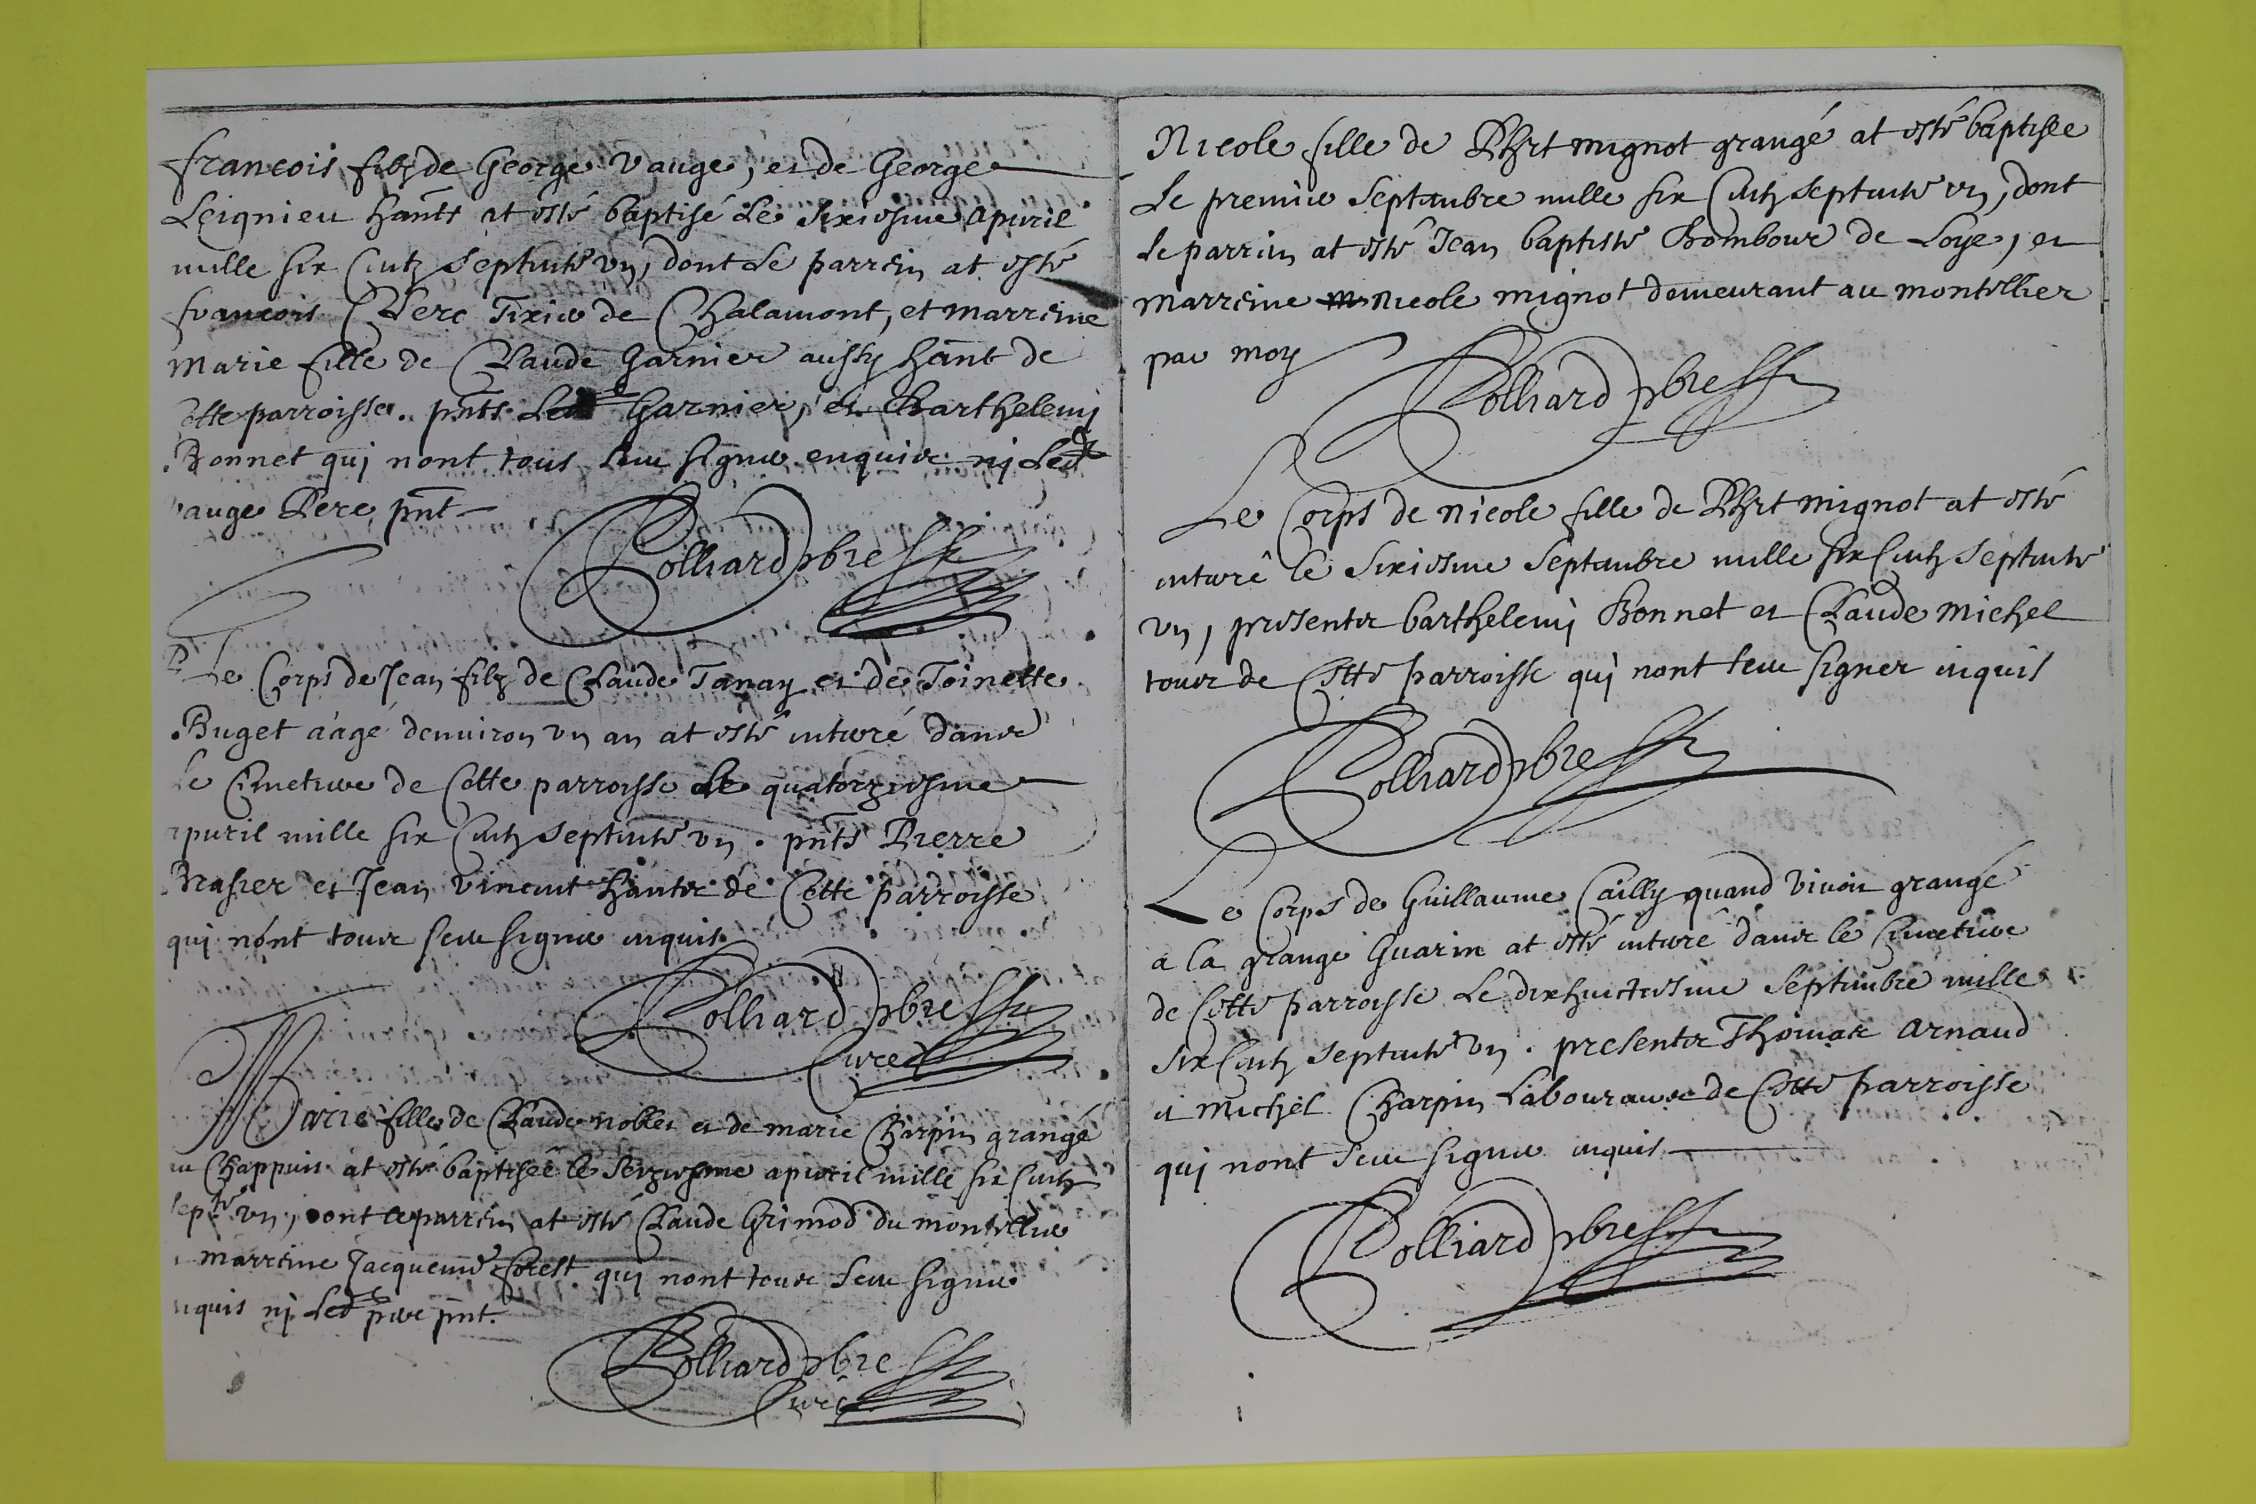 francois filz de George vauge, et de George
Leignieu hants at esté baptisé le sixiesme apuril
mille six Centz septante un, dont le parrein at esté
francois Clerc Tixier de Chalamont, et marreine
marie fille de Claude Garnier aussy hant de
Cette parroisse. pnts Led Garnier, et Barthelemi
Bonnet qui nont tous sceu signer enquis ni Led
vauge Pere pnt
Colliard pbre
Le Corps de Jean filz de Claude Tanay et de Toinette
Buget aagé denuiron un an at esté enterré dans
Le Cimetiere de Cette parroisse le quatorziesme
apuril mille six Centz septante un. pnts Pierre
Brasier et Jean vincent hants de Cette parroisse
qui nont tous sceu signer enquis
Colliard pbre
Curé
Marie fille de Claude nobles et de marie Charpin grangé
au Chappuis at esté baptisée le seiziesme apuril mille six Centz
septte un, dont le parrein at esté Claude Grimod du montellier
marreine Jacqueme forest qui nont tous sceu signer
enquis ni Led pere pnt.
Colliard pbre
Curé
Nicole fille de Phrt mignot grangé at esté baptisée
Le premier septembre mille six Centz septante un, dont
le parrein at esté Jean baptiste Bombour de Loye, et
marreine nicole mignot demeurant au montellier
par moy
Colliard pbre
Le Corps de nicole fille de Phrt mignot at esté
enterré le sixiesme septembre mille six Centz septante
un, presents barthelemi Bonnet et Claude michel
tous de Cette parroisse qui nont sceu signer enquis
Colliard pbre
Le Corps de Guillaume Cailly quand viuoit grangé
a la grange Guarin at esté enterré dans le Cimetiere
de Cette parroisse Le dixhuictiesme septembre mille
six Centz septante un. presents Thomas arnaud
et michel Charpin Laboureurs de Cette parroisse
qui nont sceu signer enquis
Colliard pbre